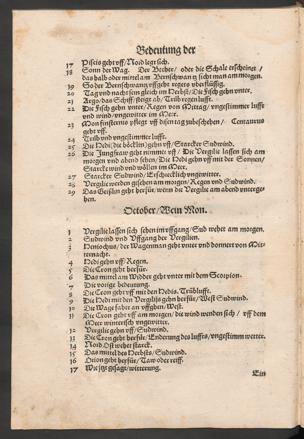 Bedeutung der
17 Piscis geht vff / Nord legt sich.
18 Sonn der Wag. Der Becher / oder die Schale erscheinet /
das halb oder mittel am Bernschwantz sicht man am morgen.
19 So der Bernschwantz vffgehe regets vberflüssig.
20 Tag vnd nacht sein gleich im Herbst / Die Fisch gehn vnter.
21 Argo / das Schiff steiget ab / Trüb regen lufft.
22 Die Fisch gehn vnter / Regen von Mittag / vngestümmer lufft
vnd wind / vngewitter im Meer.
23 Man finsternus pflegt vff disen tag zubeschehen / Centaurus
geht vff.
24 Trüb vnd vngestümmer lufft.
25 Die Hedi / die böcklin) gehn vff / Starcker Sudwind.
26 Die Jungfraw geht nimmer vff / Die Vergilie lassen sich am
morgen vnd abend sehen / Die Hedi gehn vff mit der Sonnen /
Starcke wind vnd wöllen im Meer.
27 Starcker Sudwind / Erschecklich vngewitter.
28 Vergilie werden gesehen am morgen / Regen vnd Sudwind.
29 Das Geißlin geht herfür / wenn die Vergilie am abend vnterge-
hen.
October / Wein Mon.
1 Vergilie lassen sich sehen im vffgang / Sud wehet am morgen.
2 Sudwind vnd Vffgang der Vergilien.
3 Heniochus / der Wagenman geht vnter vnd donnert von Mit-
ternacht.
4 Hedi gehn vff / Regen.
5 Die Cron geht herfür.
6 Das mittel am Widder geht vnter mit dem Scorpion.
7 Die vorige bedeutung.
8 Die Cron geht vff mit den Hedis. Trüblufft.
9 Die Hedi mit den Vergiliis gehn herfür / West Sudwind.
10 Die Wage fahet an vffgehen / West.
11 Die Cron geht vff am morgen / die wind wenden sich / vff dem
Meer winterisch vngewitter.
12 Vergilie gehn vff / Sudwind.
13 Die Cron geht herfür / Enderung des luffts / vngestüm wetter.
14 Nord Ost wehet starck.
15 Das mittel des Herbsts / Sudwind.
16 Orion geht herfür / Taw oder reiff.
17 Wie jtzt gesagt / witterung.
Ein